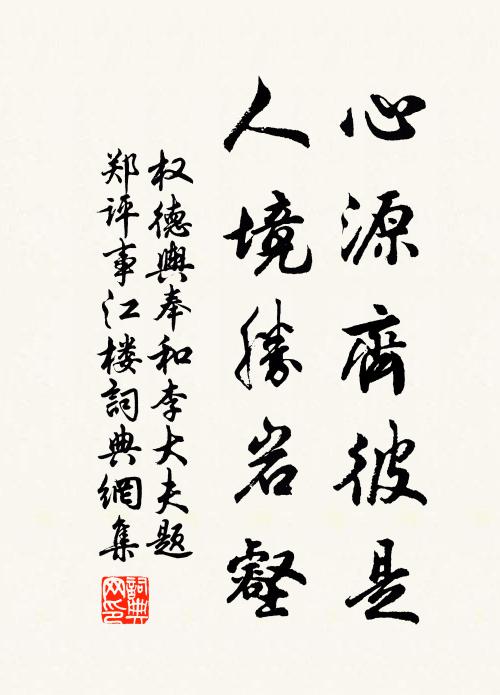 心源齊彼是
人境勝岩壑
权德舆奉和李大夫题
郑评事江楼詞典網集
詞典网印